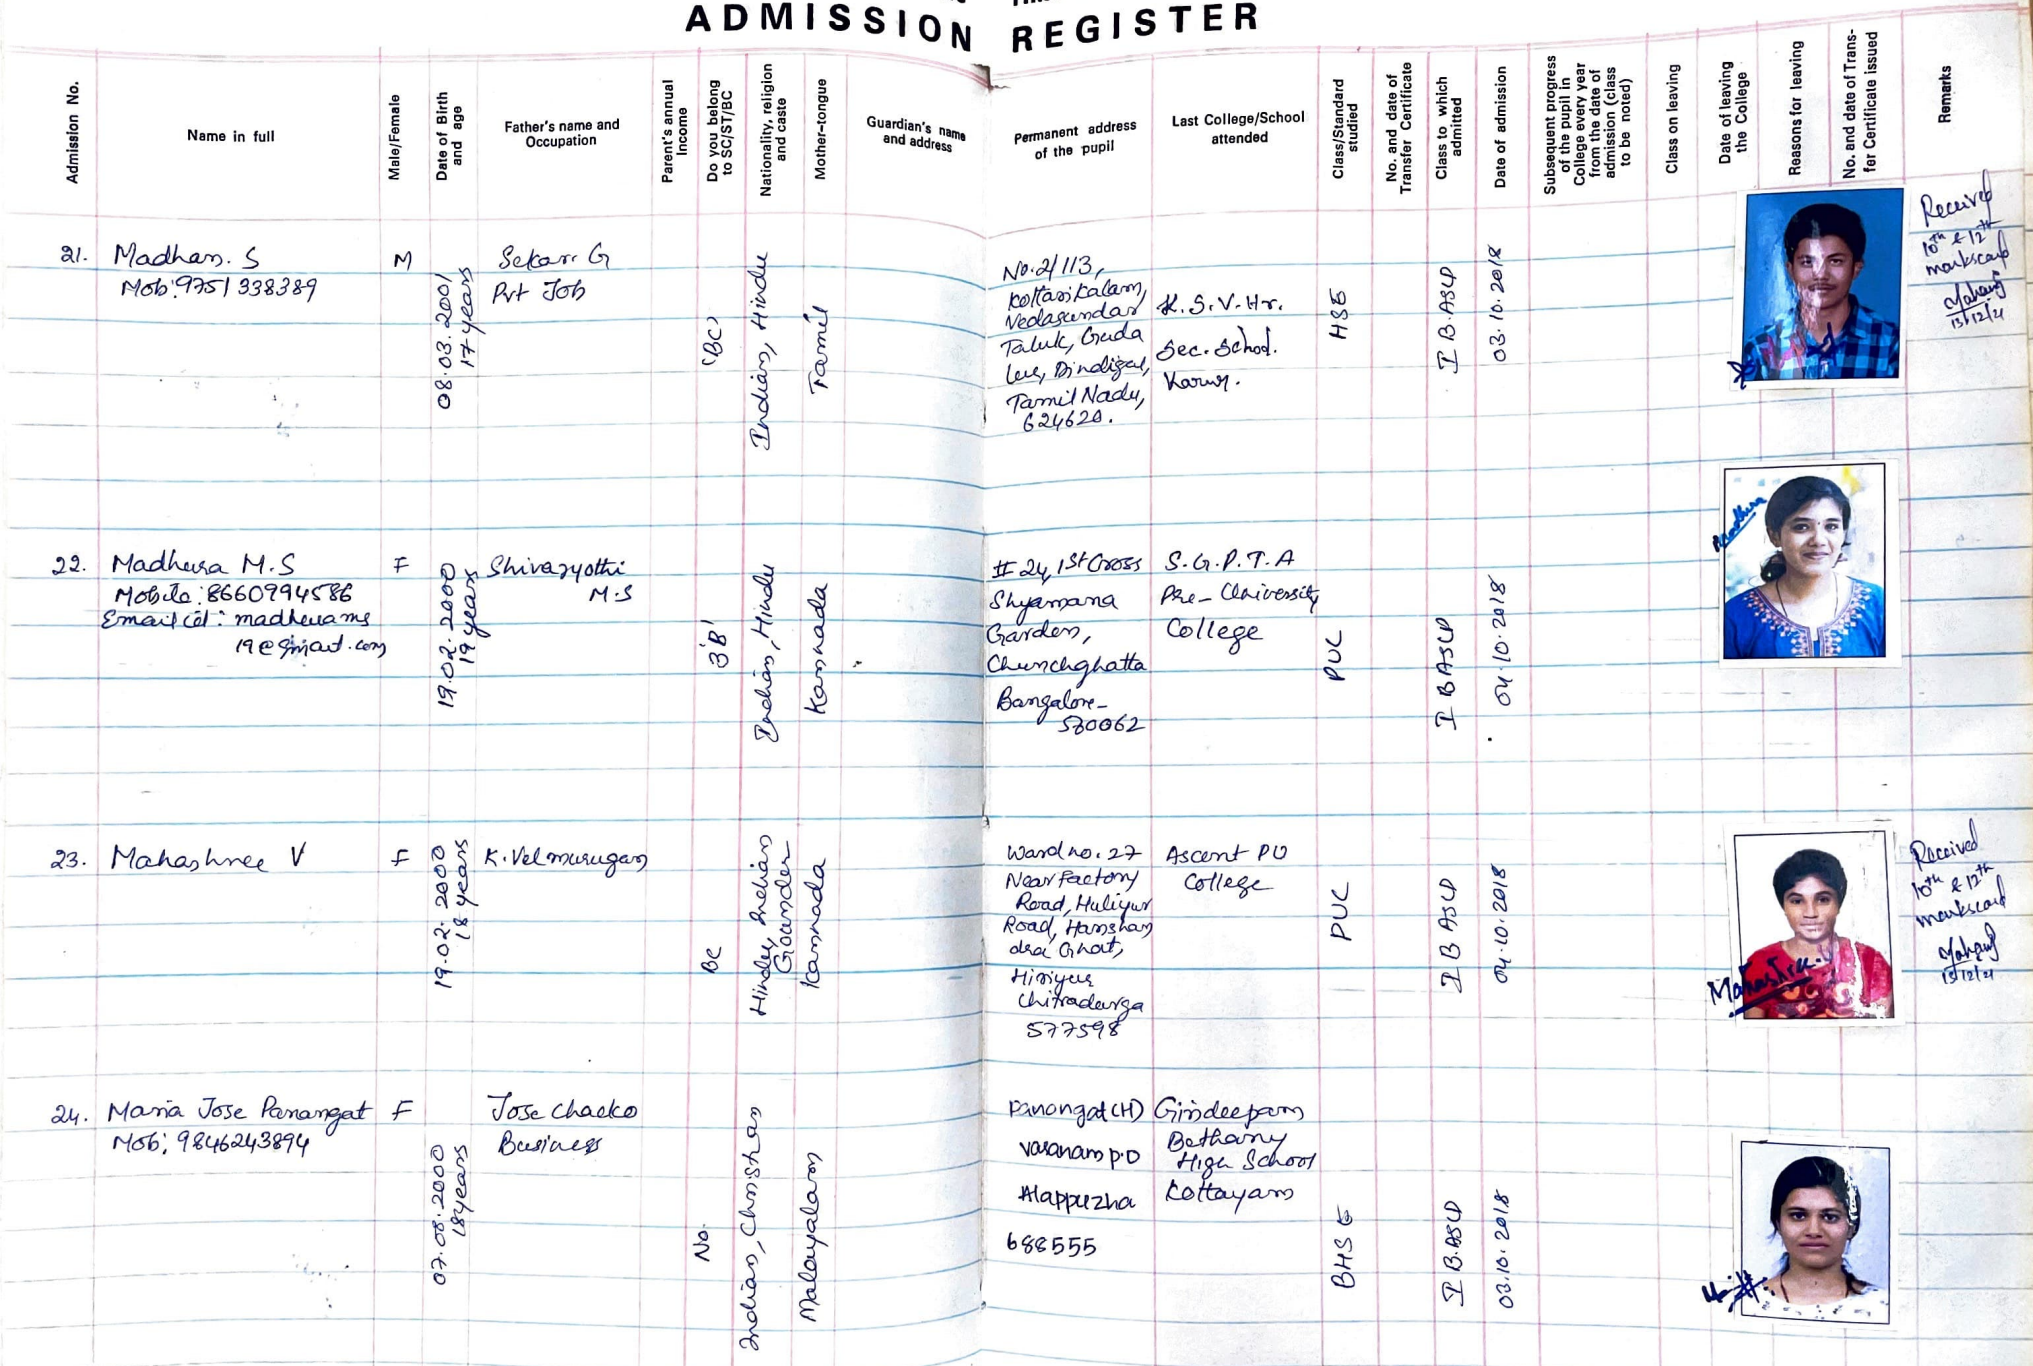 ADMISSION REGISTER
Admission No.
Name in full
Male/Female
Date of Birth
and age
Father's name and
Occupation
Parent's annual
Income
Do you belong
to SC/ST/BC
Nationality, religion
and caste
Mother-tongue
Guardian's name
and address
Permanent address
of the pupil
Last College/School
attended
Class/Standard
studied
No. and date of
Transfer Certificate
Class to which
admitted
Date of admission
Subsequent progress
of the pupil in
College every year
from the date of
admission (class
to be noted)
Class on leaving
Date of leaving
the College
Reasons for leaving
No. and date of Trans-
fer Certificate issued
Remarks
21.
Madhan. S
Mob: 9751338389
M
08.03.2001
17 years
Sekar. G
Pvt Job
(BC)
Indian, Hindu
Tamil
No.2/113,
Kottarikalam,
Vedasundar
Taluk, Guda
lur, Dindigul,
Tamil Nadu,
624620.
K.S.V. Hr.
Sec. School.
Karur.
HSE
I BASLP
03.10.2018
Received
10th & 12th
markscard
13/12/21
22.
Madhura M.S
Mobile: 8660994586
Email id: madhurams
19@gmail.com
F
19.02.2000
19 years
Shivajyothi
M.S
'3B'
Indian, Hindu
Kannada
# 24, 1st Cross
Shyamana
Garden,
Chunchghatta
Bangalore-
560062
S.G.P.T.A
Pre-University
College
PUC
I BASLP
04.10.2018
Madhura
23.
Mahashree V
F
19.02.2000
18 years
K. Velmurugan
BC
Hindu, Indian
Gounder
Kannada
Ward no. 27
Near Factory
Road, Huliyur
Road, Harishan
dra Ghat,
Hiriyur
Chitradurga
577598
Ascent PU
College
PUC
I BASLP
04.10.2018
Mahashree.
Received
10th & 12th
markscard
13/12/21
24.
Maria Jose Panangat
Mob: 9846243894
F
07.08.2000
18 years
Jose Chacko
Business
No.
Indian, Christian
Malayalam
Panangat (H)
Vasanam P.O
Alappuzha
688555
Girideepam
Bethany
High School
Kottayam
BHSE
I BASLP
03.10.2018